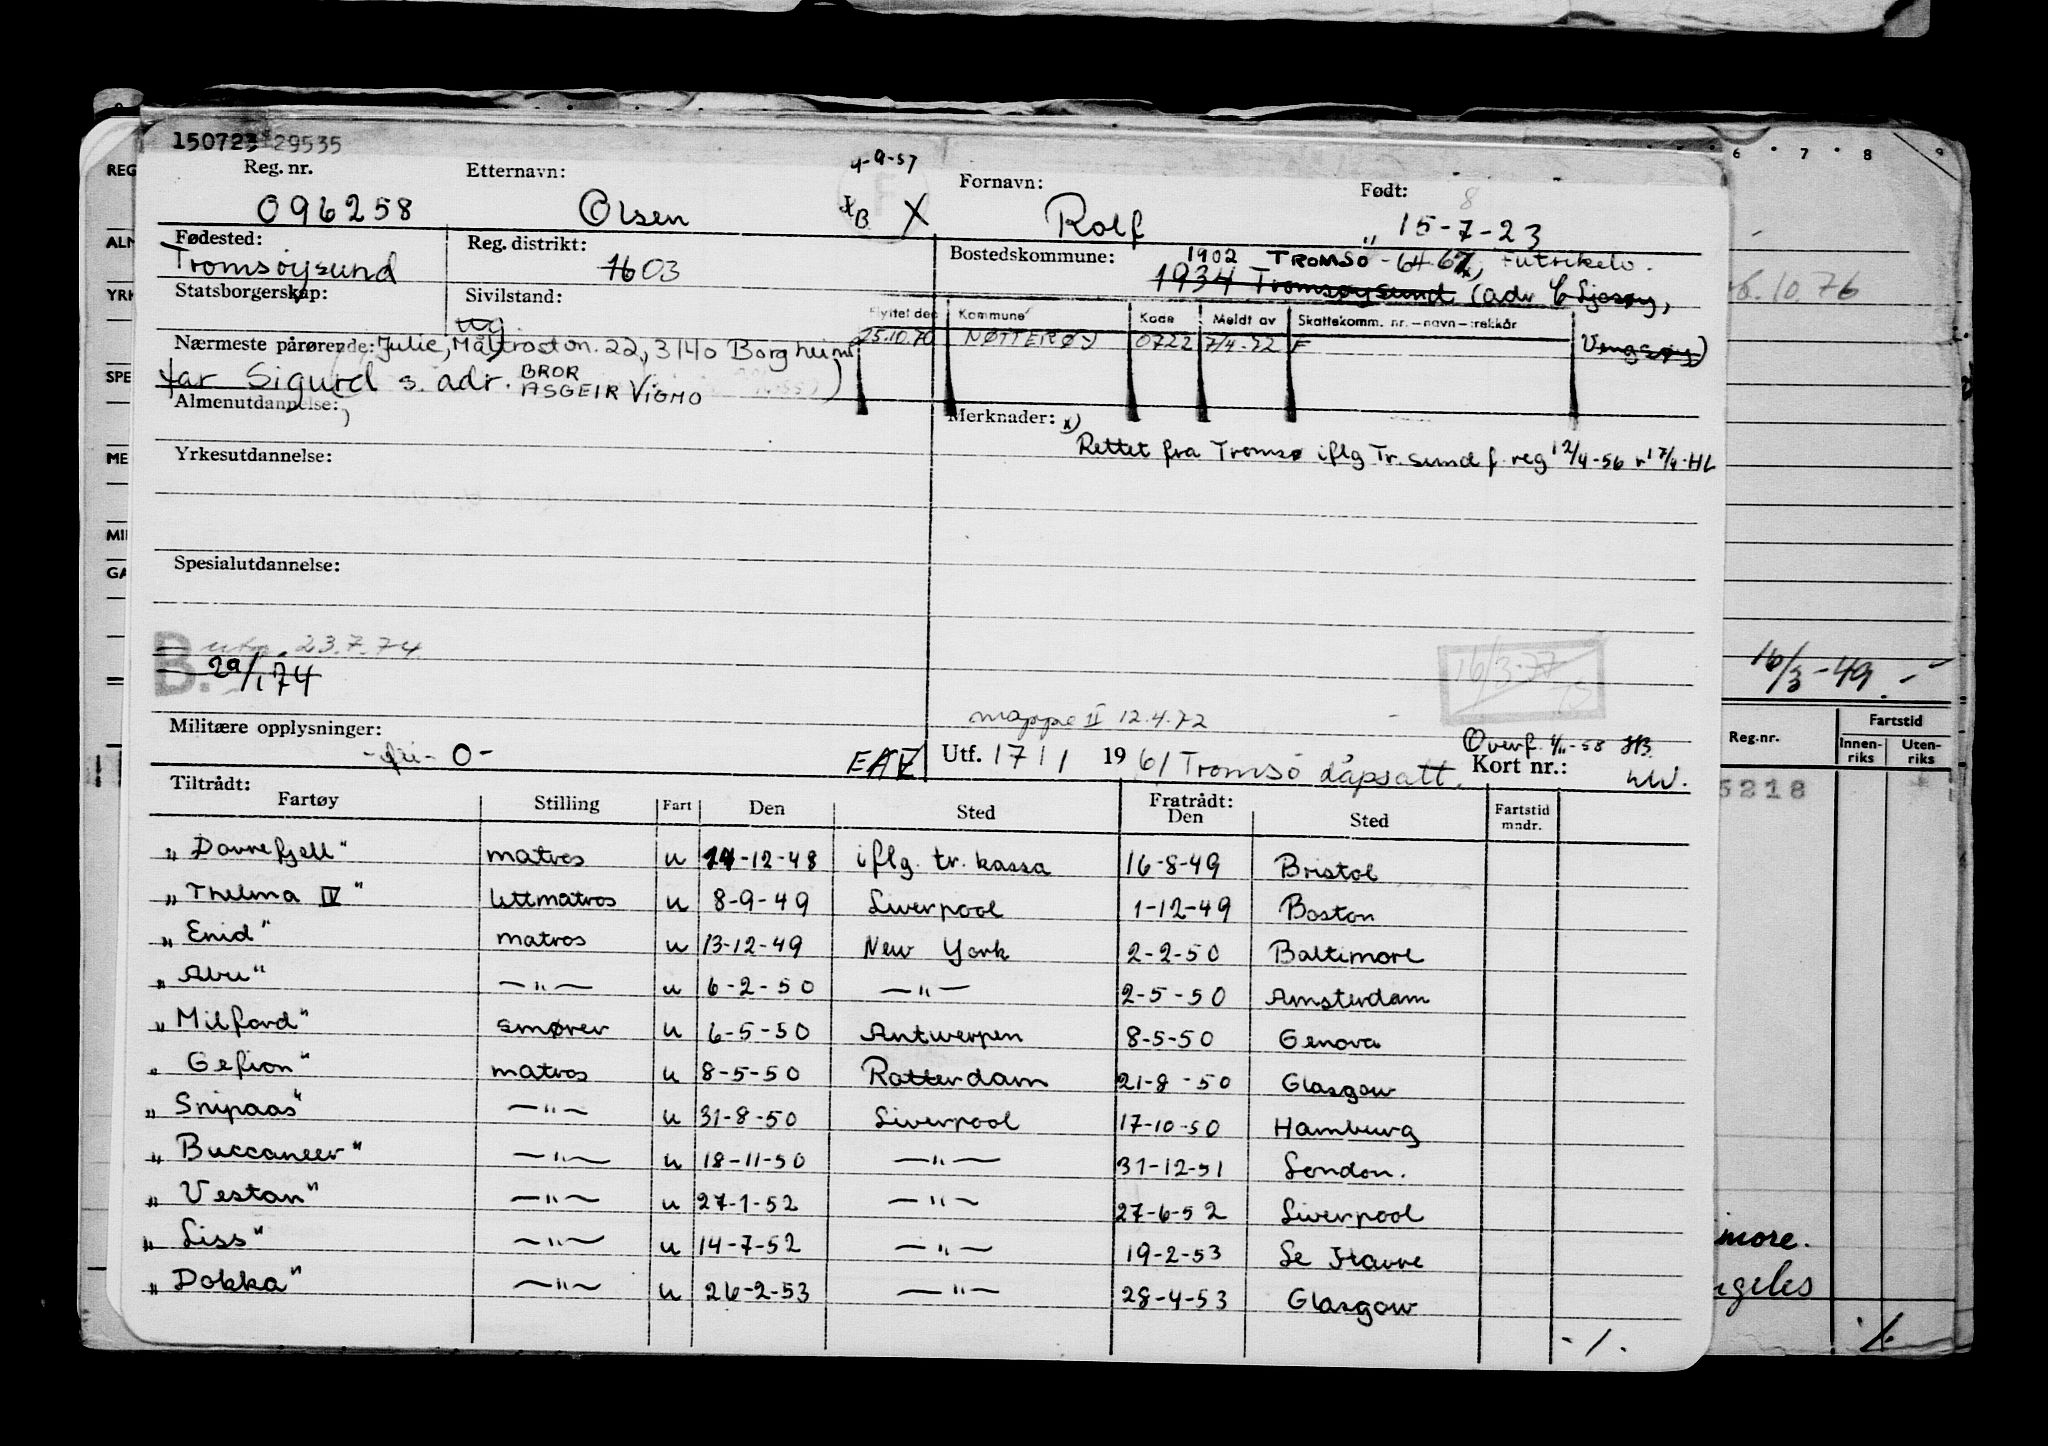 150723 29535
Reg. nr. Etternavn: 4-9-57 Fornavn: Født:
096258 Olsen XB X Rolf " 15-7-23
Fødested: Reg. distrikt: Bostedskommune: 1902 TROMSØ
Tromsøysund 1603 1934 Tromsøysund (adr
Statsborgerskap: Sivilstand: Flyttet den Kommune Kode Meldt av Skattekomm. nr. – navn – trekkår
ug. 25.10.70 NØTTERØY 0722 7/4-72 F
Nærmeste pårørende: Julie, 22, 3140 Borgheim
far Sigurd s. adr. BROR ASGEIR VIGMO )
Almenutdannelse: Merknader: x)
Rettet fra Tromsø iflg Tr.sund f. reg 12/4-56 17/4-HL
Yrkesutdannelse:
Spesialutdannelse:
B. utg. 23.7.74
29/1 74
16/3-77
mappe II 12.4.72
Militære opplysninger: -fri- O- EAE Utf. 17/1 1961 Tromsø dåpsatt. Overf. 4/11-58 HB.
Kort nr.:
Tiltrådt: Fratrådt:
Fartøy Stilling Fart Den Sted Den Sted Fartstid mndr.
"Dovrefjell" matros u 24-12-48 iflg. tr. kassa 16-8-49 Bristol
"Thelma IV" lettmatros u 8-9-49 Liverpool 1-12-49 Boston
"Enid" matros u 13-12-49 New York 2-2-50 Baltimore
"Abu" —"— u 6-2-50 —"— 2-5-50 Amsterdam
"Milford" smører u 6-5-50 Antwerpen 8-5-50 Genova
"Gefion" matros u 8-5-50 Rotterdam 21-8-50 Glasgow
"Snipaas" —"— u 31-8-50 Liverpool 17-10-50 Hamburg
"Buccaneer" —"— u 18-11-50 —"— 31-12-51 London.
"Vestan" —"— u 27-1-52 —"— 27-6-52 Liverpool
"Liss" —"— u 14-7-52 —"— 19-2-53 Le Havre
"Dokka" —"— u 26-2-53 —"— 28-4-53 Glasgow
-/.
6 7 8 9
10 76
16/3-49.-
Reg.nr. Fartstid
Innen-riks Uten-riks
5218
imore.
ngeles
./.
REG
ALM
YRK
SPE
ME
MIL
GA